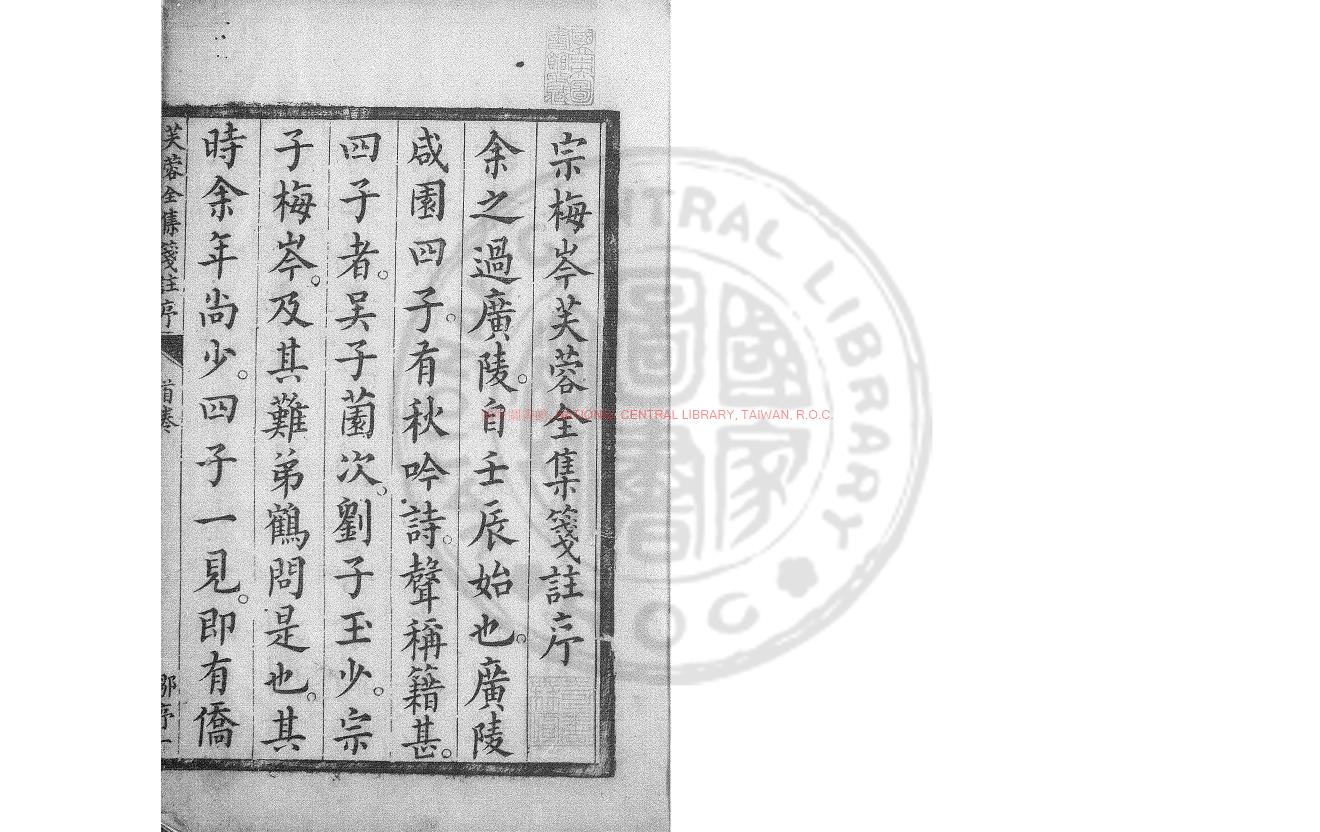 宗梅岑芙蓉全集箋註序
余之過廣陵。自壬辰始也。廣陵
咸園四子。有秋吟詩。聲稱籍甚。
四子者。吴子薗次。劉子玉少。宗
子梅岑。及其難弟鶴問是也。其
時余年尚少。四子一見。即有僑
芙蓉全集箋註序
首卷
鄒序一
NATIONAL CENTRAL LIBRARY, TAIWAN, R.O.C.
CENTRAL LIBRARY
ROC